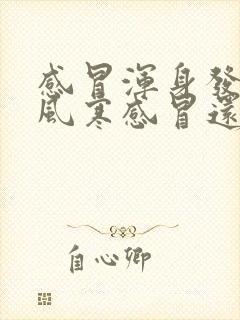 感冒渾身發
風寒感冒還
自心卿